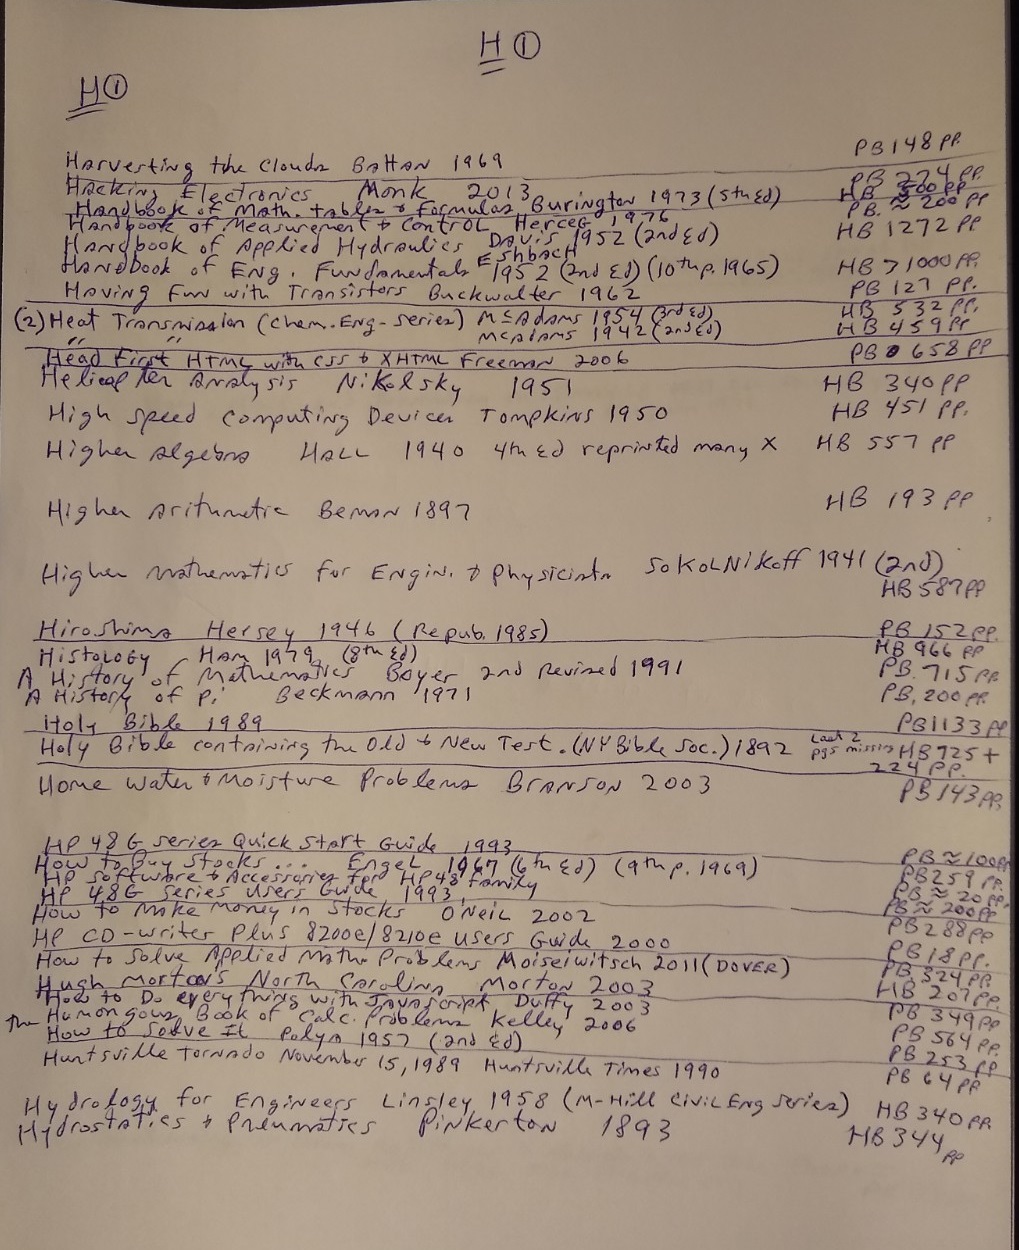 H ①
H ①
Harvesting the Clouds Battan 1969 PB 148 pp.
Hacking Electronics Monk 2013 PB 274 pp.
Handbook of Math. tables & Formulas Burington 1973 (5th Ed) HB 500 pp
Handbook of Measurement & Control Herceg 1976 PB. ≈ 200 pp
Handbook of Applied Hydraulics Davis 1952 (2nd Ed) HB 1272 pp
Handbook of Eng. Fundamentals Eshbach 1952 (2nd Ed) (10th p. 1965) HB > 1000 pp.
Having Fun with Transistors Buckwalter 1962 PB 127 pp.
(2) Heat Transmission (Chem. Eng-series) McAdams 1954 (3rd Ed) HB 532 pp.
" " McAdams 1942 (2nd Ed) HB 459 pp
Head First HTML with CSS & XHTML Freeman 2006 PB 658 pp
Helicopter Analysis Nikolsky 1951 HB 340 pp
High Speed Computing Devices Tompkins 1950 HB 451 pp.
Higher Algebra Hall 1940 4th Ed reprinted many X HB 557 pp
Higher Arithmetic Beman 1897 HB 193 pp
Higher Mathematics for Engin. & Physicists Sokolnikoff 1941 (2nd)
HB 587 pp
Hiroshima Hersey 1946 (Repub. 1985) PB 152 pp.
Histology Ham 1979 (8th Ed) HB 966 pp
A History of Mathematics Boyer 2nd Revised 1991 PB. 715 pp
A History of Pi Beckmann 1971 PB, 200 pp.
Holy Bible 1989 PB 1133 pp
Holy Bible containing the Old & New Test. (NY Bible Soc.) 1892 Last 2 pgs missing HB 925 +
224 pp.
Home Water & Moisture Problems Branson 2003 PB 143 pp.
HP 48G series Quick Start Guide 1993 PB ≈ 100 pp
How to Buy Stocks ... Engel 1967 (6th Ed) (9th p. 1969) PB 259 pp.
HP Software & Accessories for HP48 family PB ≈ 20 pp.
HP 48G Series Users Guide 1993 PB ≈ 200 pp
How to Make Money in Stocks O'Neil 2002 PB 288 pp
HP CD-Writer Plus 8200e/8210e Users Guide 2000 PB 18 pp.
How to Solve Applied Math Problems Moiseiwitsch 2011 (DOVER) PB 324 pp.
Hugh Morton's North Carolina Morton 2003 HB 207 pp.
How to Do everything with Javascript Duffy 2003 PB 349 pp
the Humongous Book of Calc. Problems Kelley 2006 PB 564 pp.
How to Solve It Polya 1957 (2nd Ed) PB 253 pp
Huntsville Tornado November 15, 1989 Huntsville Times 1990 PB 64 pp
Hydrology for Engineers Linsley 1958 (M-Hill Civil Eng Series) HB 340 pp
Hydrostatics & Pneumatics Pinkerton 1893 HB 344 pp